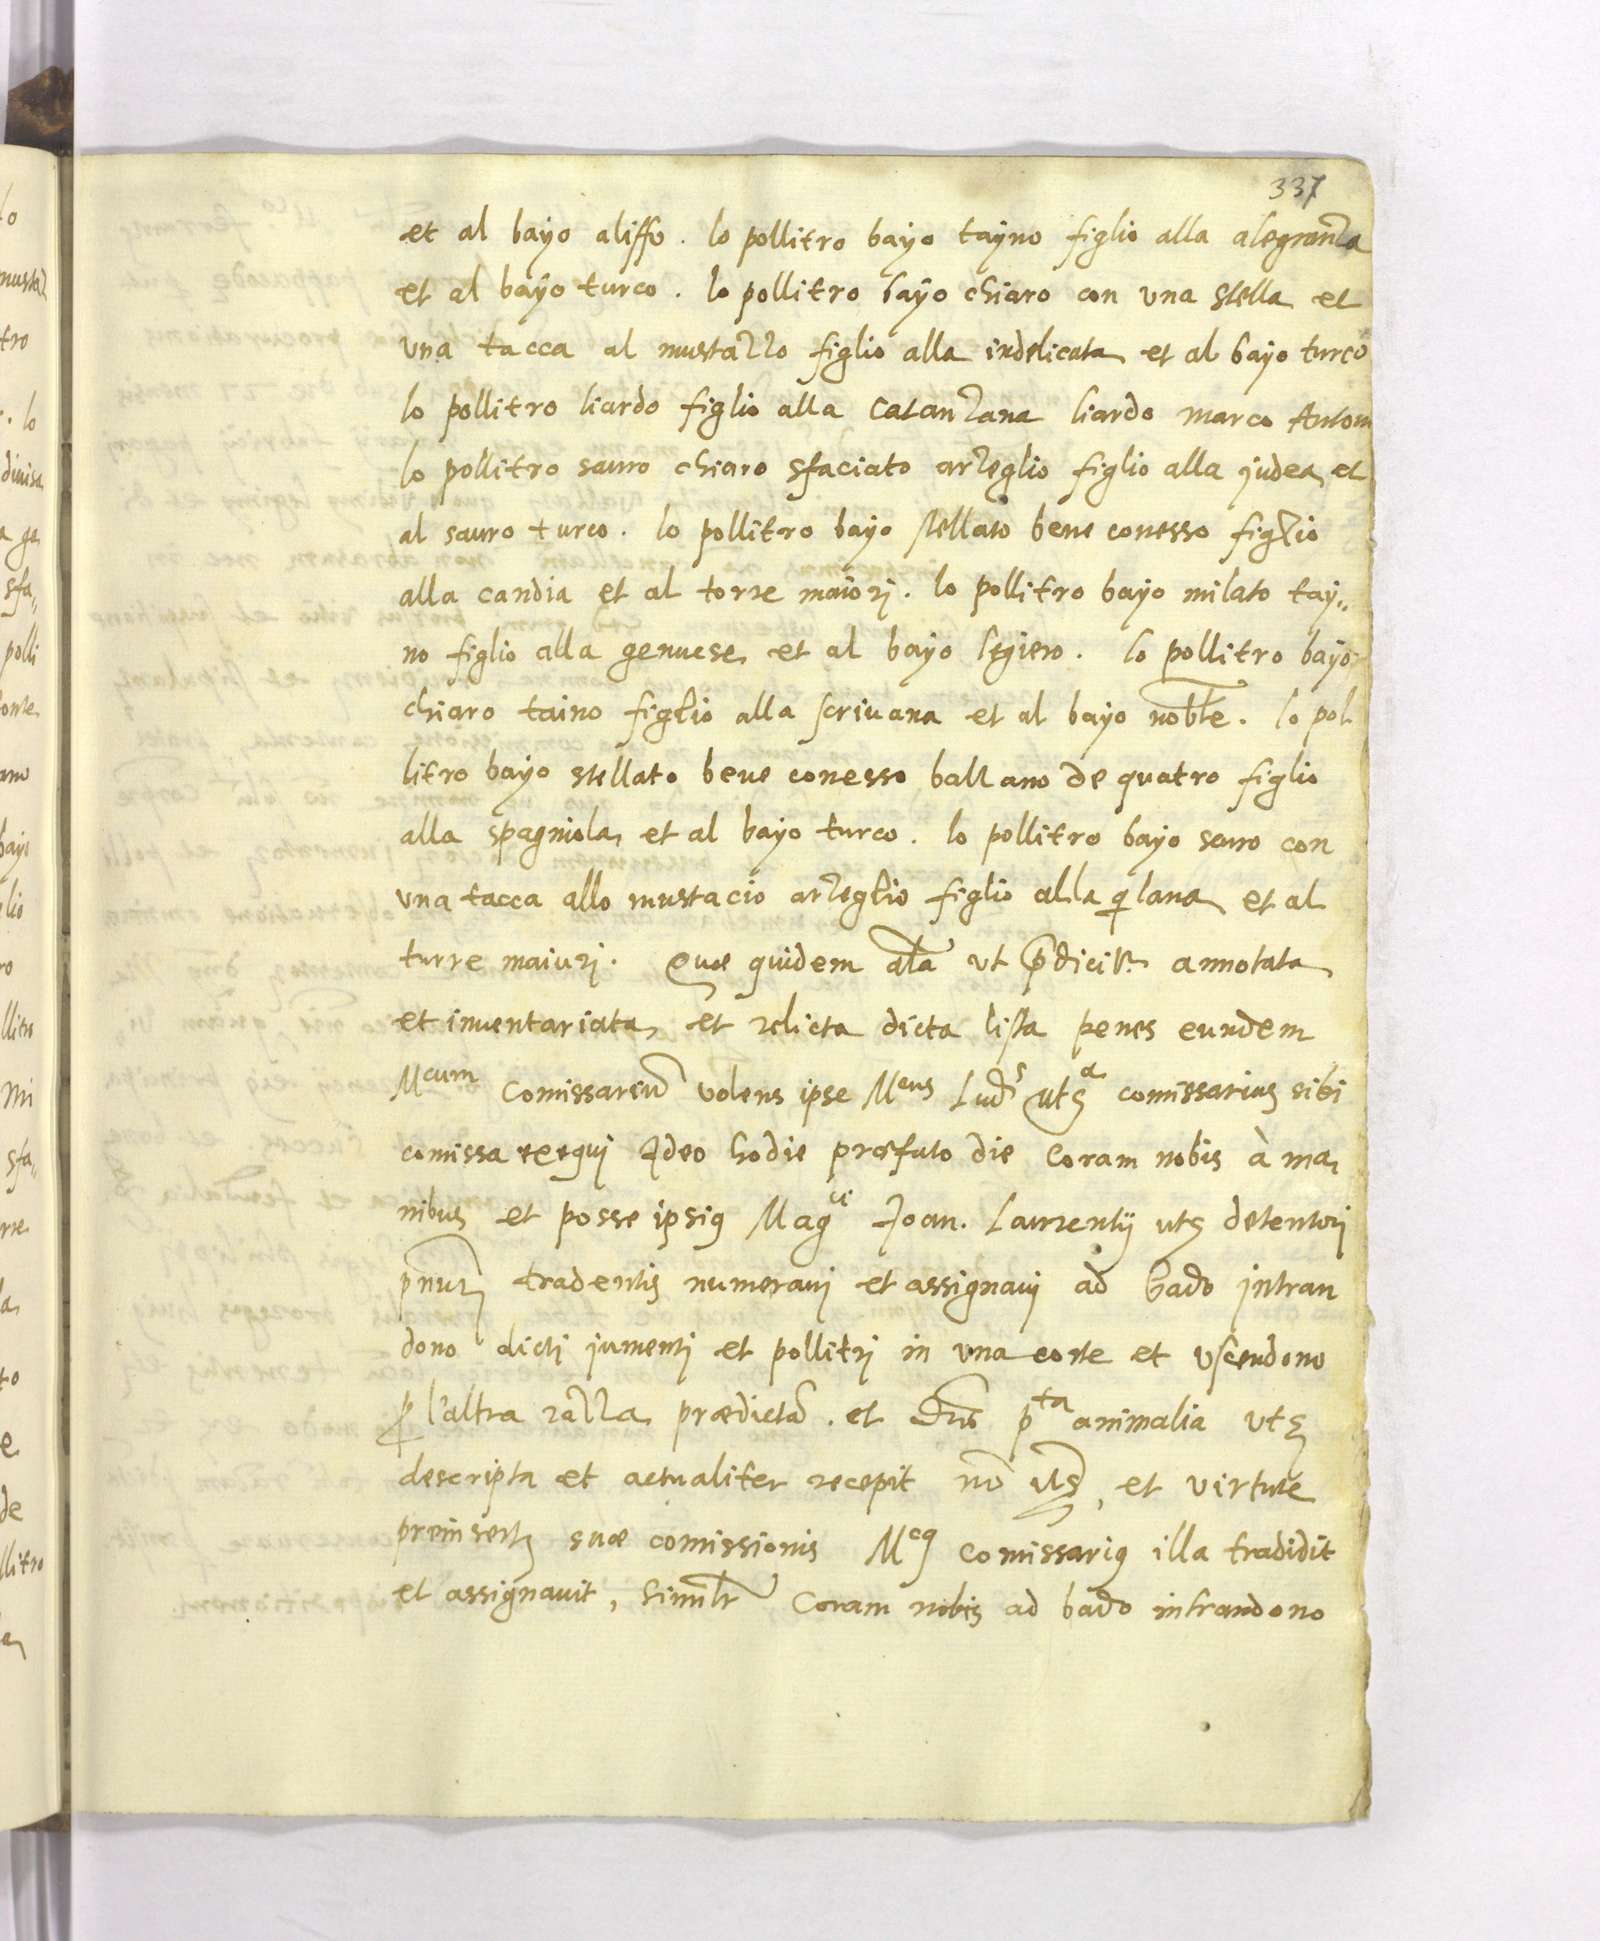 337
et al bayo aliffo. lo pollitro bayo tayno figlio alla alegranza
et al bayo turco. lo pollitro bayo chiaro con una stella et
una tacca al mustazzo figlio alla indelicata et al bayo turco
lo pollitro liardo figlio alla Catanzana liardo marco Anton
lo pollitro sauro chiaro sfaciato arzeglio figlio alla judea et
al sauro turco. lo pollitro bayo stellato bene conesso figlio
alla candia et al torre maiori. lo pollitro bayo milato tay,,
no figlio alla genuese et al bayo legiero. lo pollitro bayo
chiaro taino figlio alla scrivana et al bayo noble. lo pol
litro bayo stellato bene conesso balzano de quatro figlio
alla spagniola et al bayo turco. lo pollitro bayo sauro con
una tacca allo mustacio arzeglio figlio alla et al
turre maiuri. Quæ quidem ut annotata
et inventariata et relicta dicta lista penes eundem
Mcum Comissariu volens ipse Mcus Lud.s comissarius sibi
comissa exequi Ideo hodie præfato die Coram nobis à ma,
nibus et posse ipsiq Magci Joan. Laurentij uts detentori
tradentis numeravi et assignavi ad bado intran
dono dicti jumenti et pollitri in una corte et uscendono
p l'altra razza prædicta. et pta animalia uts
descripta et actualiter recepit no uts, et virtute
preinserte suæ comissionis Mcq Comissariq illa tradidit
et assignavit, Similr Coram nobis ad bado intrandono